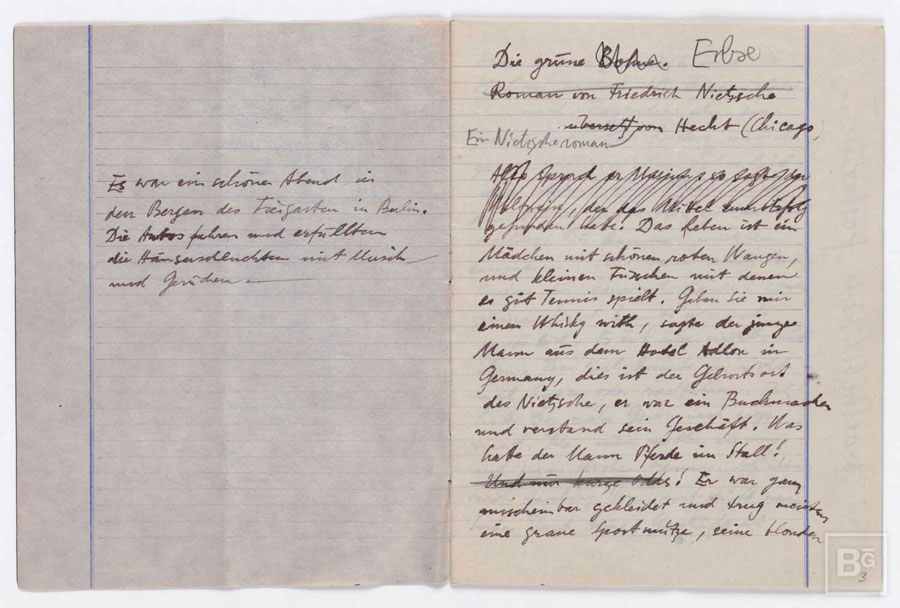 Es war ein schöner Abend in
den Bergen des Tiergarten in Berlin.
Die Autos fuhren und erfüllten
die Häuserschluchten mit Musik
und Gerüchen
Die grüne Bohne. Erbse
Roman von Friedrich Nietzsche
übersetzt von Hecht (Chicago)
Ein Nietzscheroman
Also sprach er
der das Mittel zum Erfolg
gefunden hatte. Das Leben ist ein
Mädchen mit schönen roten Wangen,
und kleinen Füschen mit denen
es gut Tennis spielt. Geben Sie mir
einen Whisky with, sagte der junge
Mann aus dem Hotel Adlon in
Germany, dies ist der Geburtsort
des Nietzsche, er war ein Buchmacher
und verstand sein Geschäft. Was
hatte der Mann Pferde im Stall!
Und nur kurze Odds! Er war ganz
unscheinbar gekleidet und trug meistens
eine graue Sportmütze, seine blonden
BG
3